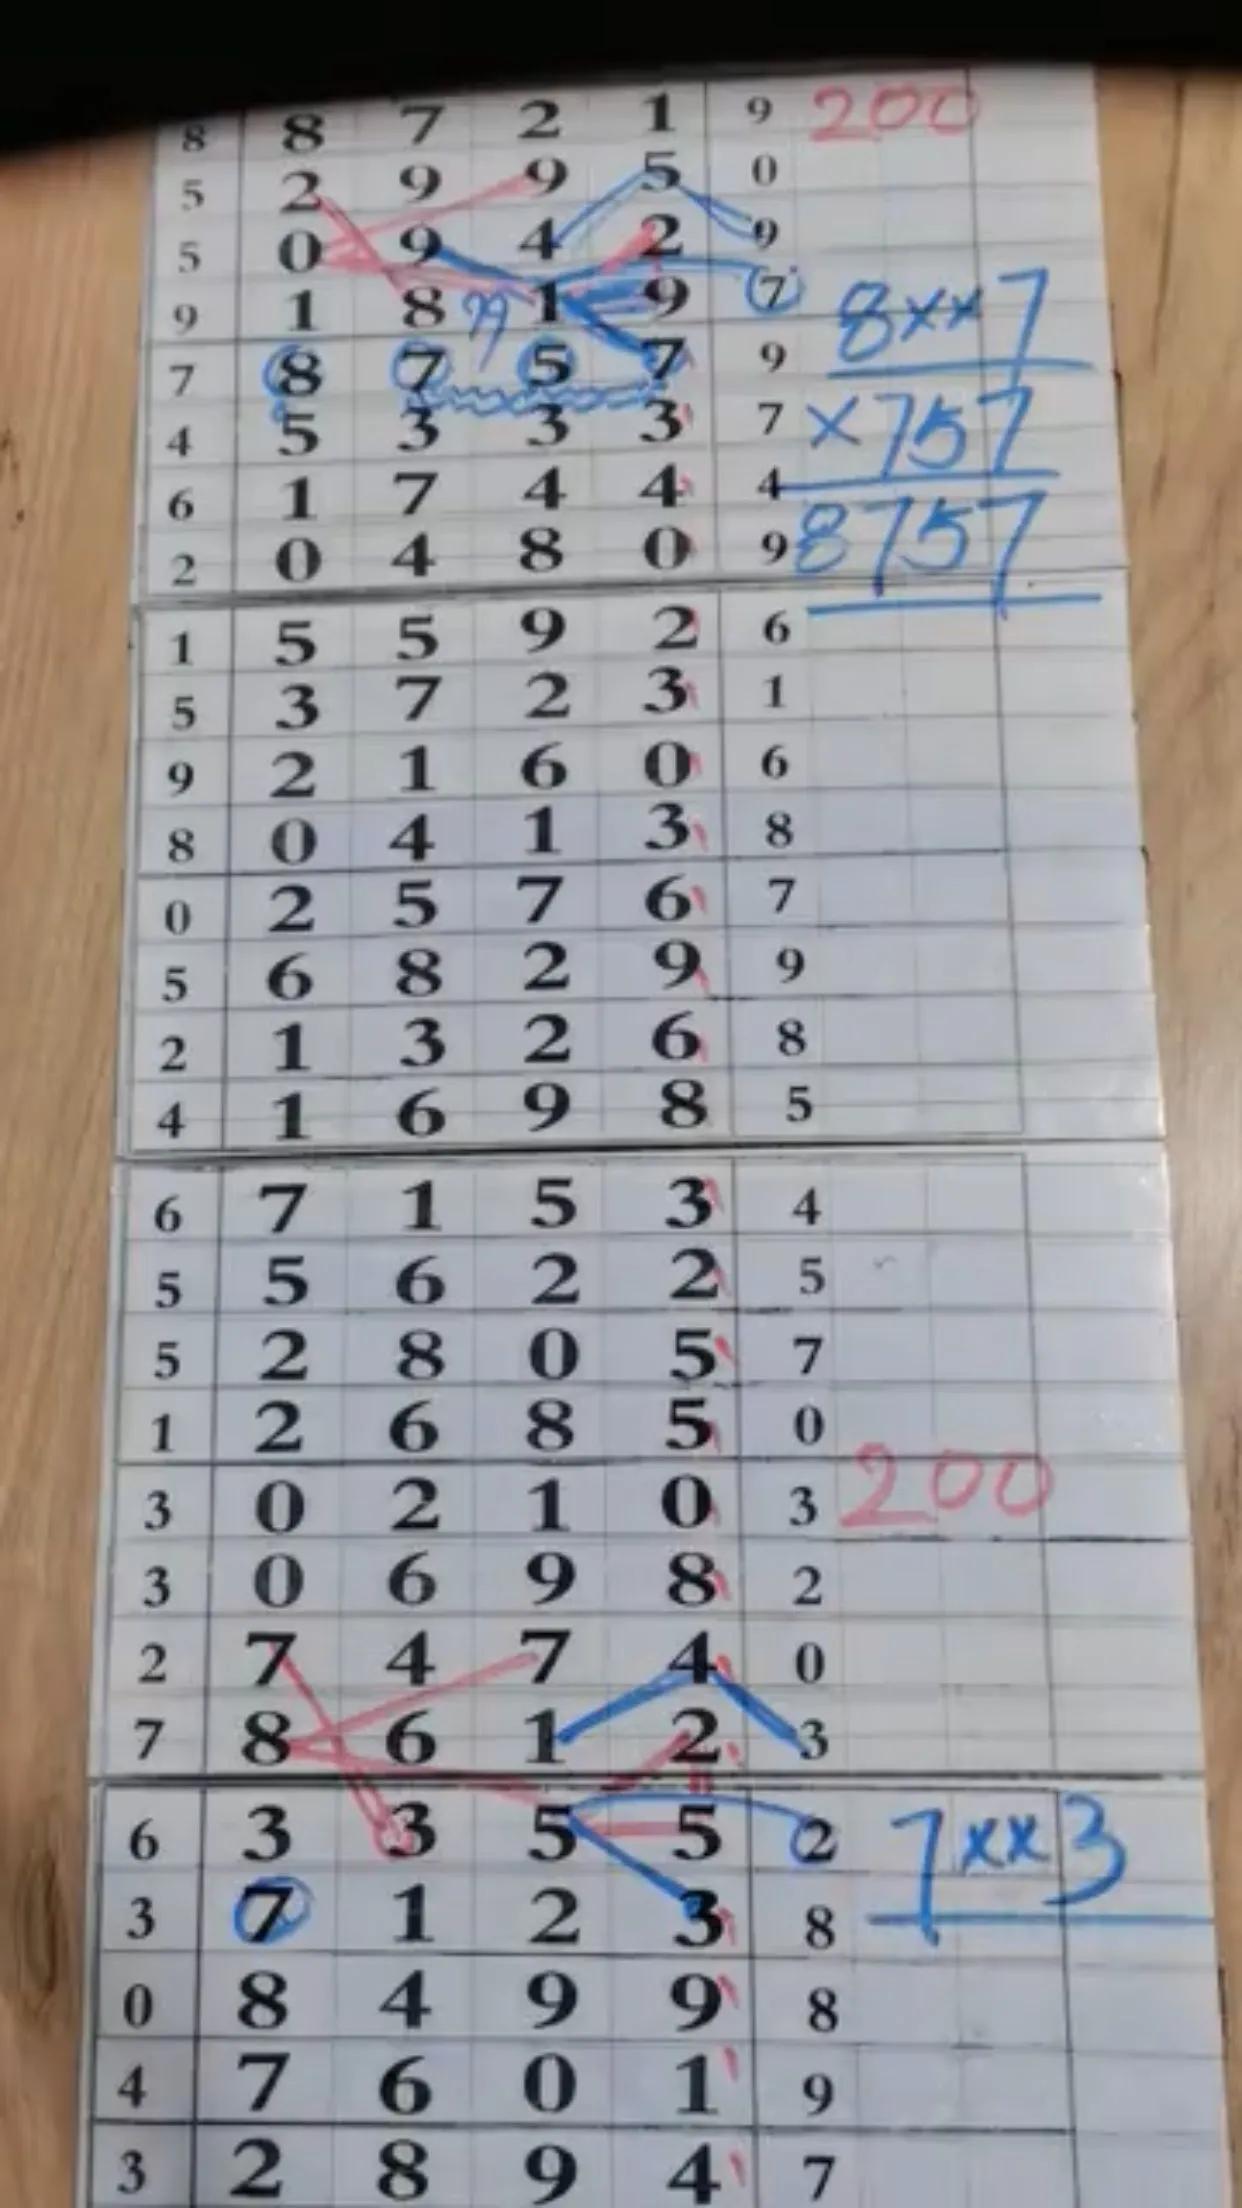 8 8 7 2 1 9 200
5 2 9 9 5 0
5 0 9 4 2 9
9 1 8 1 9 7 8xx7
7 8 7 5 7 9
4 5 3 3 3 7 x757
6 1 7 4 4 4
2 0 4 8 0 9 8757
1 5 5 9 2 6
5 3 7 2 3 1
9 2 1 6 0 6
8 0 4 1 3 8
0 2 5 7 6 7
5 6 8 2 9 9
2 1 3 2 6 8
4 1 6 9 8 5
6 7 1 5 3 4
5 5 6 2 2 5
5 2 8 0 5 7
1 2 6 8 5 0
3 0 2 1 0 3 200
3 0 6 9 8 2
2 7 4 7 4 0
7 8 6 1 2 3
6 3 3 5 5 2 7xx3
3 7 1 2 3 8
0 8 4 9 9 8
4 7 6 0 1 9
3 2 8 9 4 7